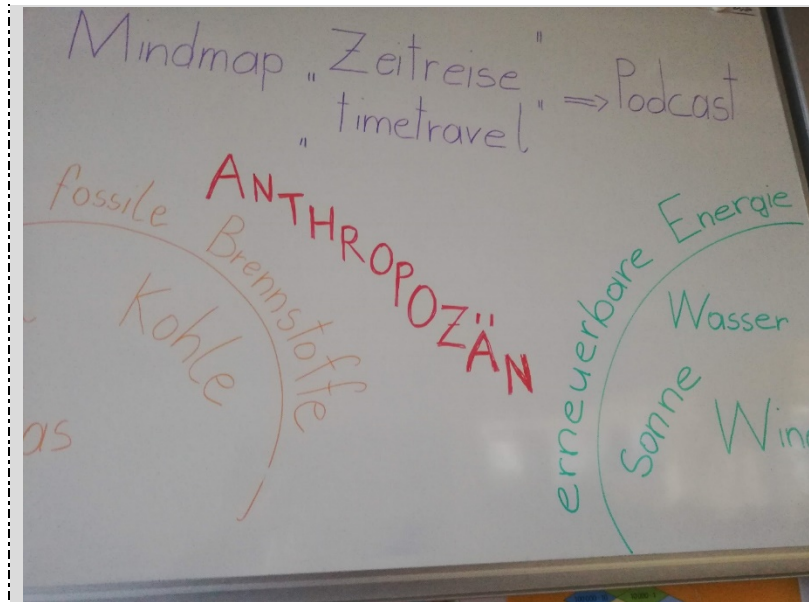 Mindmap „Zeitreise" ⇒ Podcast
„timetravel"
ANTHROPOZÄN
fossile Brennstoffe
Kohle
as
erneuerbare Energie
Wasser
Sonne
Win